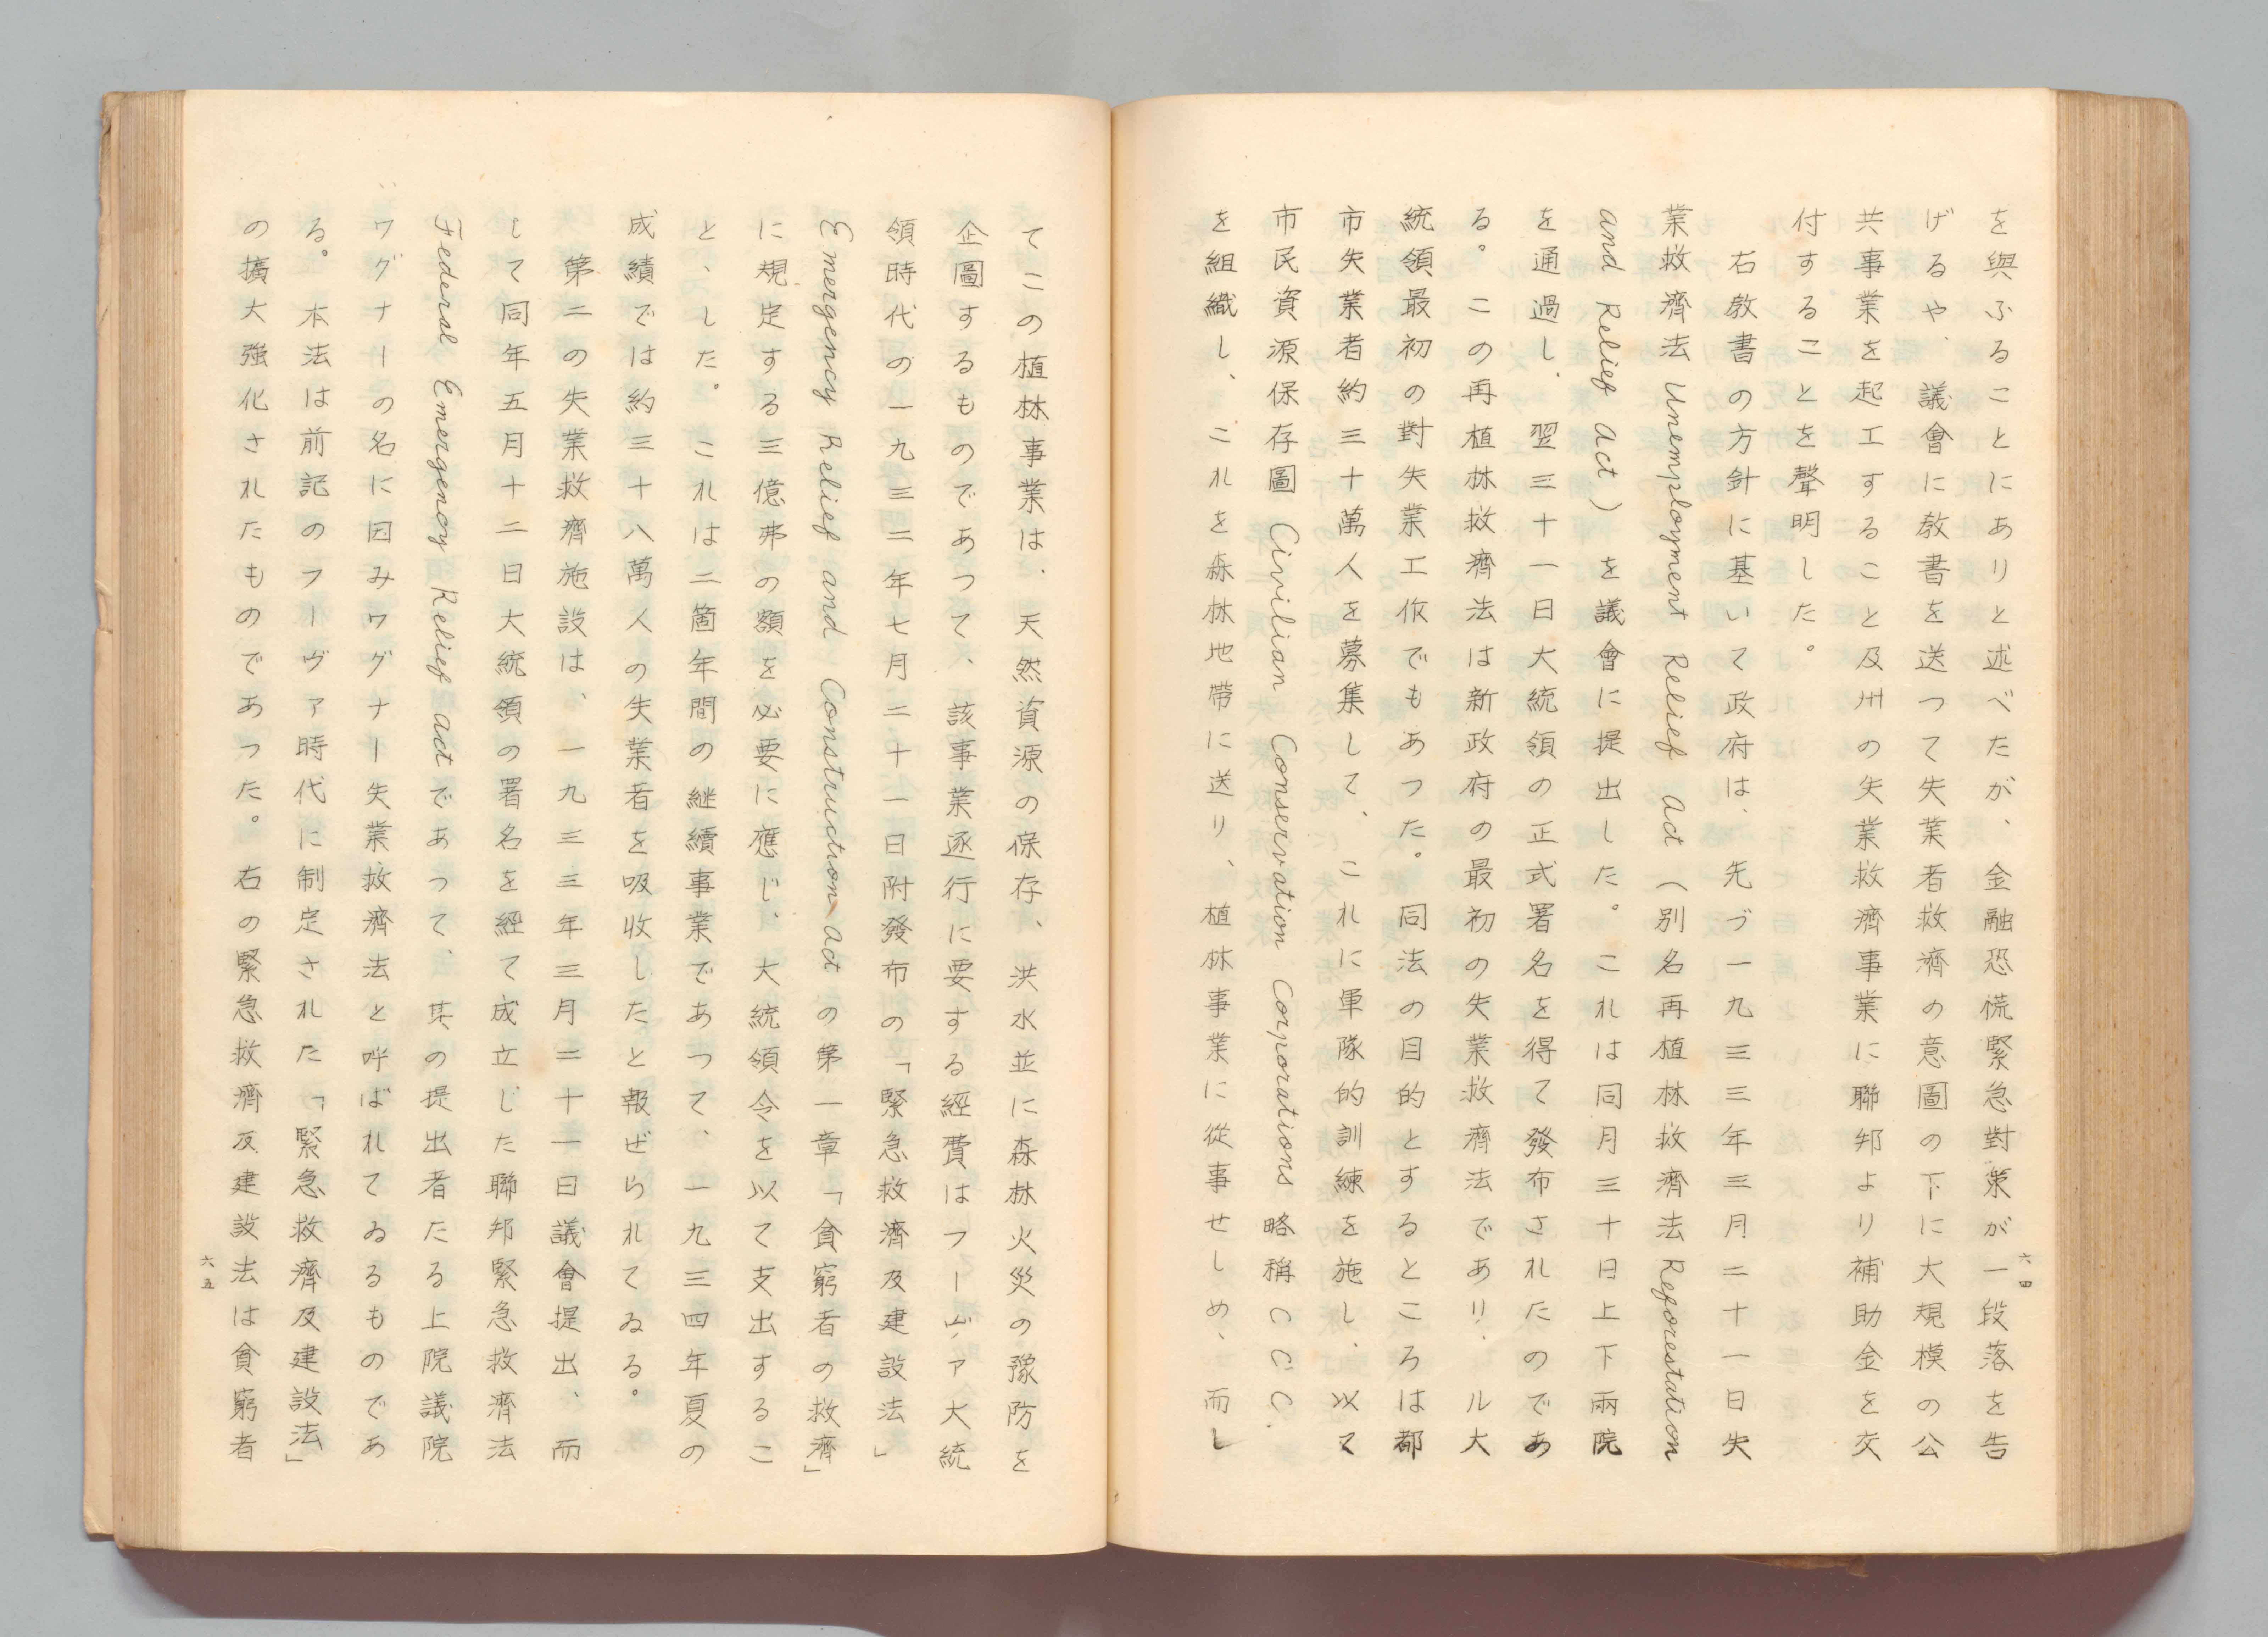 を與ふることにありと述べたが、金融恐慌緊急對策が一段落を告
げるや、議會に敎書を送つて失業者救濟の意圖の下に大規模の公
共事業を起工すること及州の失業救濟事業に聯邦より補助金を交
付することを聲明した。
右敎書の方針に基いて政府は、先づ一九三三年三月二十一日失
業救濟法 Unemployment Relief Act（別名再植林救濟法 Reforestation
and Relief Act）を議會に提出した。これは同月三十日上下兩院
を通過し、翌三十一日大統領の正式署名を得て發布されたのであ
る。この再植林救濟法は新政府の最初の失業救濟法であり、ル大
統領最初の對失業工作でもあつた。同法の目的とするところは都
市失業者約三十萬人を募集して、これに軍隊的訓練を施し、以て
市民資源保存圖 Civilian Conservation Corporations 略稱 C C C.
を組織し、これを森林地帶に送り、植林事業に從事せしめ、而し
六四
てこの植林事業は、天然資源の保存、洪水並に森林火災の豫防を
企圖するものであつて、該事業逐行に要する經費はフーヴァ大統
領時代の一九三二年七月二十一日附發布の「緊急救濟及建設法」
Emergency Relief and Construction Act の第一章「貧窮者の救濟」
に規定する三億弗の額を必要に應じ、大統領令を以て支出するこ
と、した。これは二箇年間の継續事業であつて、一九三四年夏の
成績では約三十八萬人の失業者を吸收したと報ぜられてゐる。
第二の失業救濟施設は、一九三三年三月二十一日議會提出、而
して同年五月十二日大統領の署名を経て成立した聯邦緊急救濟法
Federal Emergency Relief Act であつて、其の提出者たる上院議院
ワグナーの名に因みワグナー失業救濟法と呼ばれてゐるものであ
る。本法は前記のフーヴァ時代に制定された「緊急救濟及建設法」
の擴大強化されたものであつた。右の緊急救濟及建設法は貧窮者
六五